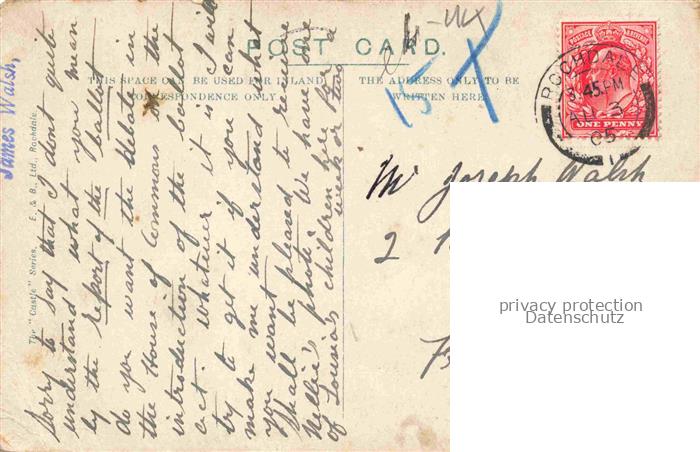 James Walsh,
The "Castle" Series. E. & B., Ltd., Rochdale.
POST CARD.
THIS SPACE CAN BE USED FOR INLAND
CORRESPONDENCE ONLY.
THE ADDRESS ONLY TO BE
WRITTEN HERE.
24-UX
15 X
POSTAGE & REVENUE
ONE PENNY
ROCHDALE
45 PM
05
Sorry to say that I dont quite
understand what you mean
by the report of the ballot
do you want the debate in
the House of Commons on the
introduction of the ballot
act. whatever it is I will
try to get it if you can
make me understand what
you want
Shall be pleased to receive
Nellie's photo. We have one
of Louisa's children here for a
week or two
Mr Joseph Walsh
2
privacy protection
Datenschutz